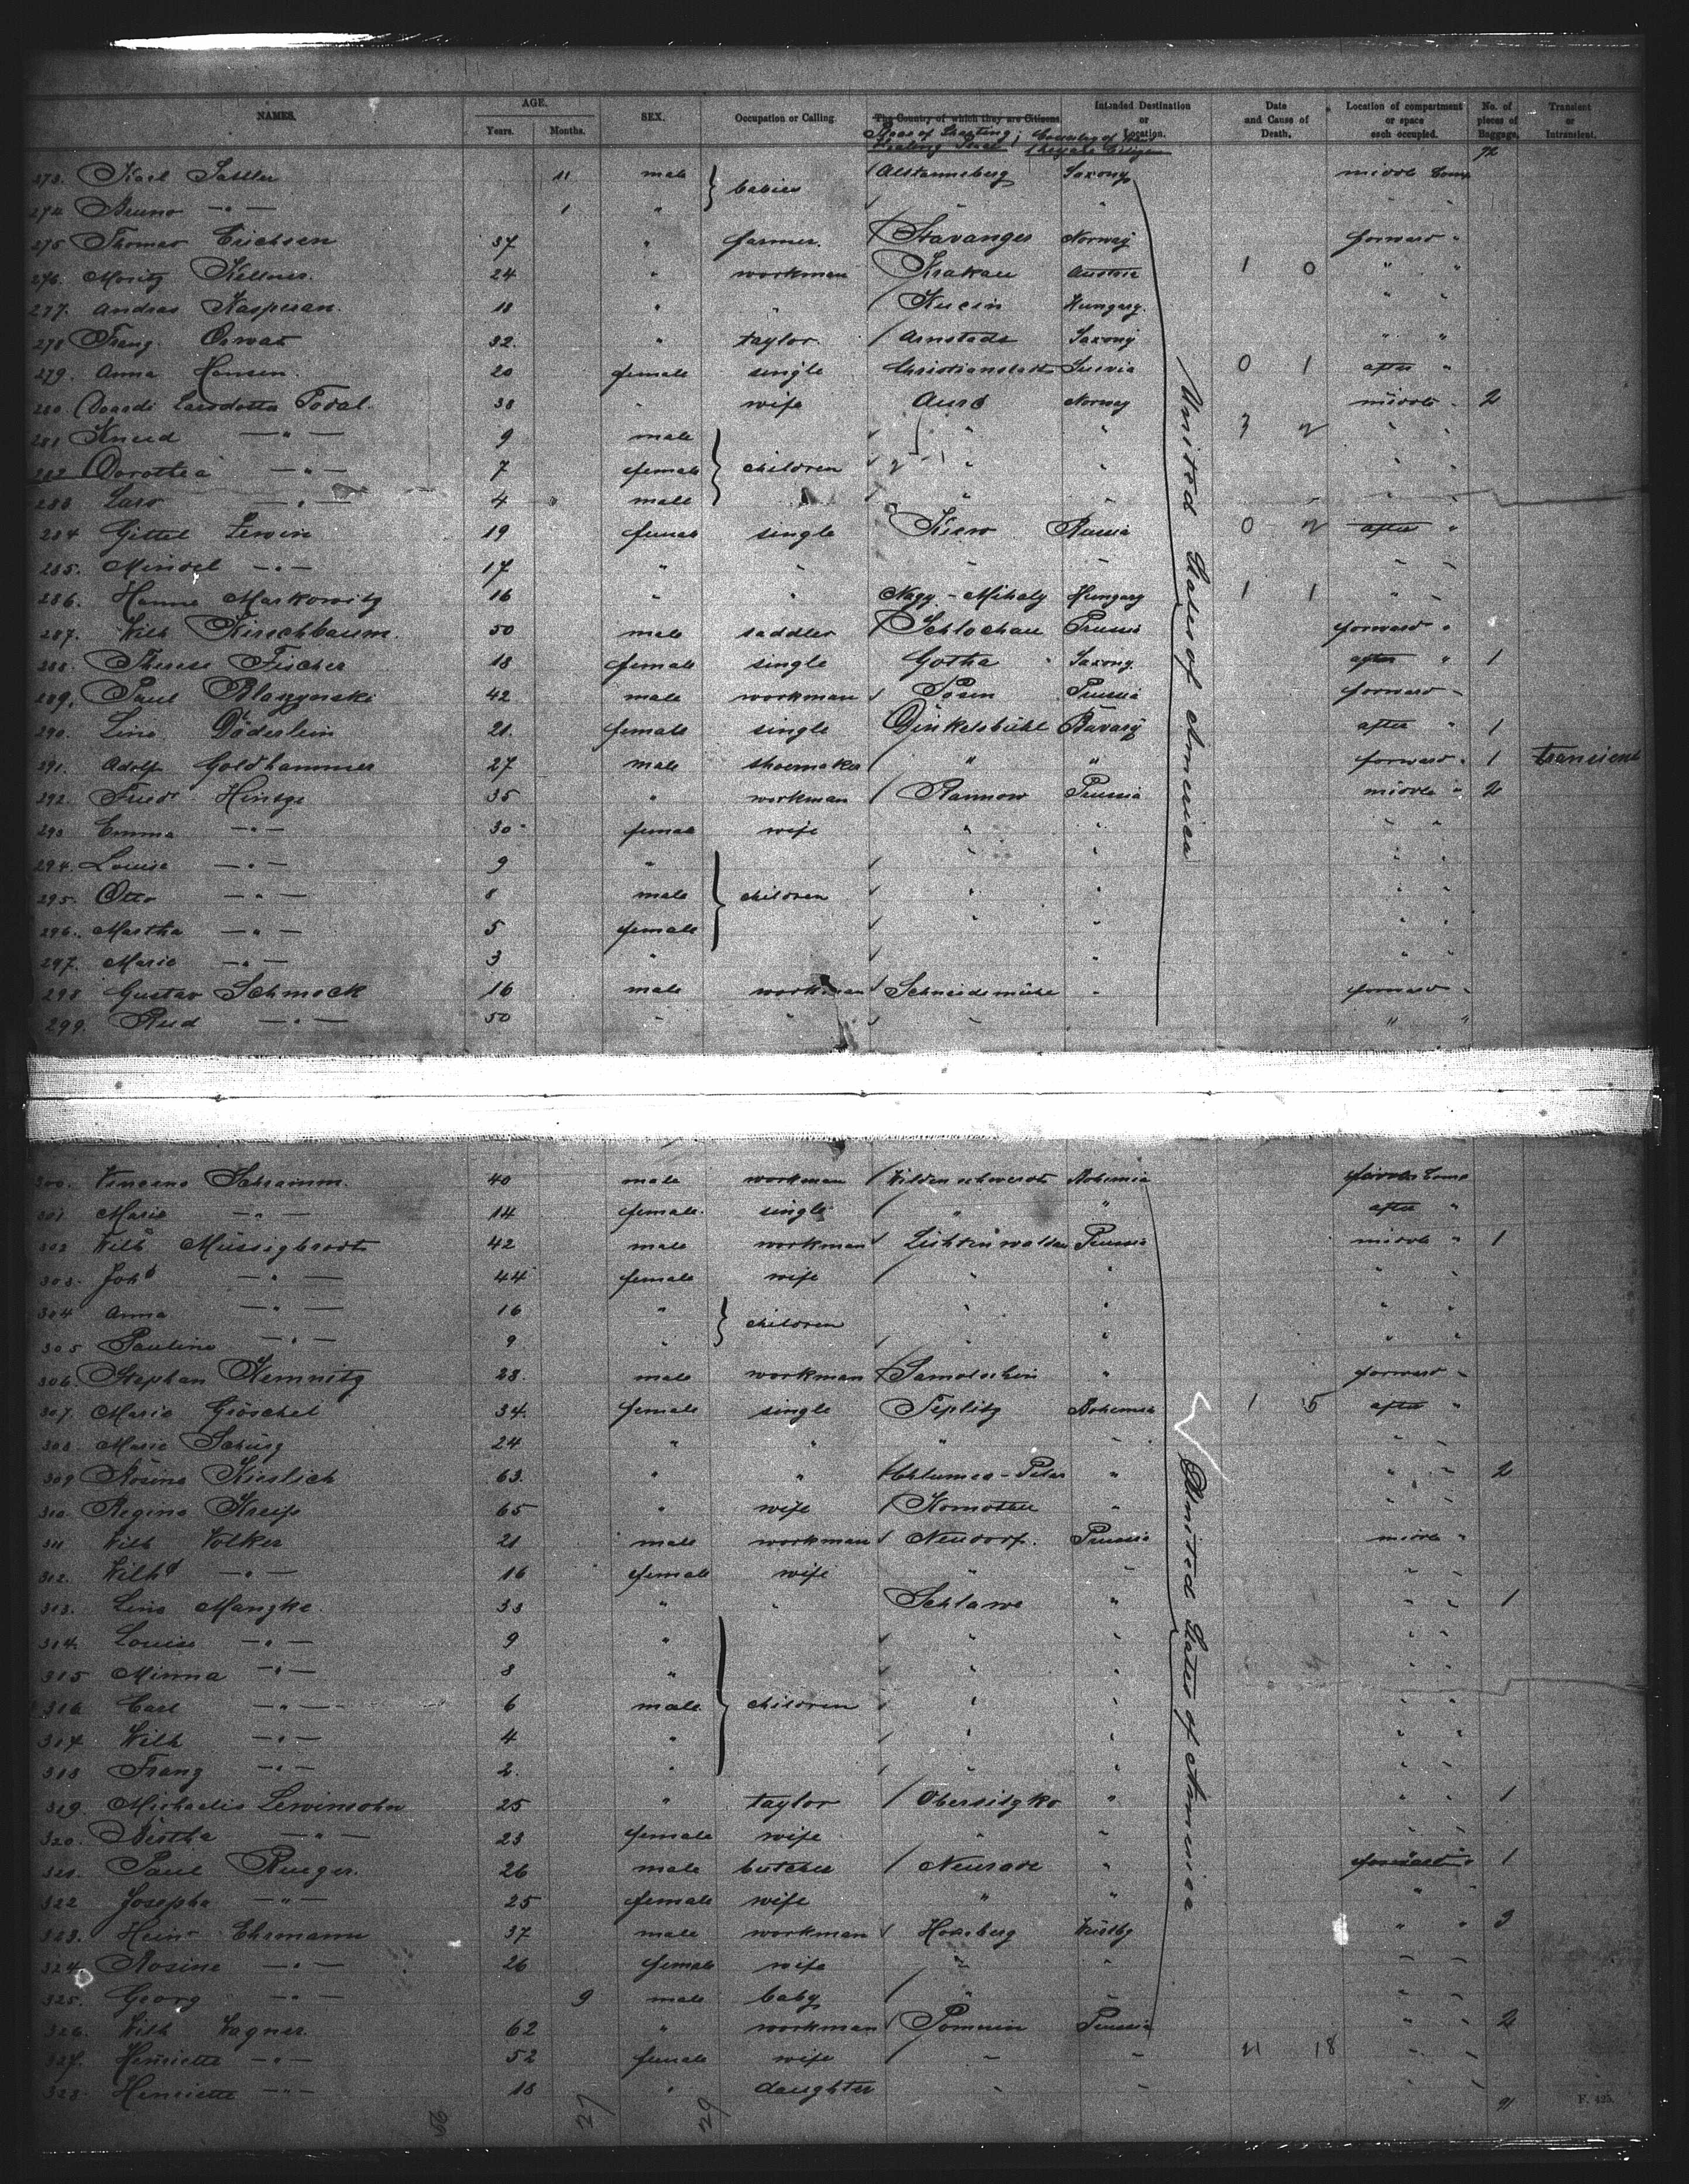 NAMES. AGE. Years. Months. SEX. Occupation or Calling. The Country of which they are Citizens. Intended Destination or Location. Date and Cause of Death. Location of compartment or space each occupied. No. of pieces of Baggage. Transient or Intransient.
273. Karl Sattler 11 male babies Saxony middle Comp
274 Bruno -"- 1 " " "
275 Thomas Erichsen 37 " farmer. Stavanger Norway forward "
276. Moritz Kellner. 24 " workman Krakau Austria 1 0 " "
277. Andras Kasperan. 18 " " Hungary. " "
278 Franz 32. " taylor. Arnstadt Saxony " "
279. Anna Hansen. 20 female single Christianstadt 0 1 after "
280 Todal. 38 " wife Aure Norway middle " 2
281 Knud -"- 9 male children " " 3 2 " "
282 Dorothea -"- 7 female " " " "
283 Lars -"- 4 male " " " "
284 Gittel Lewin 19 female single Kiew Russia 0 2 after "
285. Mindel -"- 17 " " " " " "
286. Hanne Markowitz 16 " " Nagy-Mihaly Hungary 1 1 " "
287. Wilh Kirschbaum. 50 male saddler Schlochau Prussia forward "
288. Therese Fischer 18 female single Gotha Saxony. after " 1
289. Paul Blaszynski 42 male workman Posen Prussia forward "
290. Line Döderlein 21. female single Dinkelsbühl Bavary after " 1
291. Adolf Goldhammer 27 male shoemaker " " forward " 1 transient
292. Friedr Hintze 35 " workman Rannow Prussia middle " 2
293 Emma -"- 30 female wife " " " "
294. Louise -"- 9 " children " " " "
295. Otto -"- 8 male " " " "
296. Martha -"- 5 female " " " "
297. Marie -"- 3 " " " "
298 Gustav Schmock 16 male workman Schneidemühl " forward "
299. Rud -"- 50 " " " " "
United States of America
300. Schramm. 40 male workman Wildenschwerdt Bohemia Comp
301 Marie -"- 14 female. single " " after "
302 Wilh Müssigbrodt 42 male workman Prussia middle " 1
303. Johe -"- 44 female wife " " " "
304 Anna -"- 16 " children " " " "
305 Pauline -"- 9 " " " " "
306. Stephan Kemnitz 28. male workman Samotschin " forward "
307. Marie Gröschel 34. female single Teplitz Bohemia 1 5 after "
308. Marie 24 " " " " " "
309 Rosine Kieslich 63. " " " " " 2
310. Regina Kreiss 65 " wife Komotau " " "
311 Wilh Volker 21 male workman Neudorf. Prussia middle "
312. Wilhe -"- 16 female wife " " " "
313. Line Manzke. 33 " " Schlawe " " " 1
314. Louise -"- 9 " children " " " "
315 Minna -"- 8 " " " " "
316 Carl -"- 6 male " " " "
317 Wilh -"- 4 " " " " "
318 Franz -"- 2. " " " " "
319. Michaelis Lewinsohn 25 " taylor Obersitzko " " " 1
320. Bertha -"- 23 female wife " " " "
321. Paul Rueger. 26 male butcher Neurode " forward " 1
322 Josepha -"- 25 female wife " " " "
323. Heinr Ehrmann 37 male workman " " 3
324. Rosine -"- 26 female wife " " " "
325. Georg -"- 9 male baby " " " "
326. Wilh Wagner. 62 " workman Prussia " " 2
327. Henriette -"- 52 female wife " " 21 18 " "
328. Henriette -"- 18 " daughter " " " "
United States of America
27 29
F. 425.